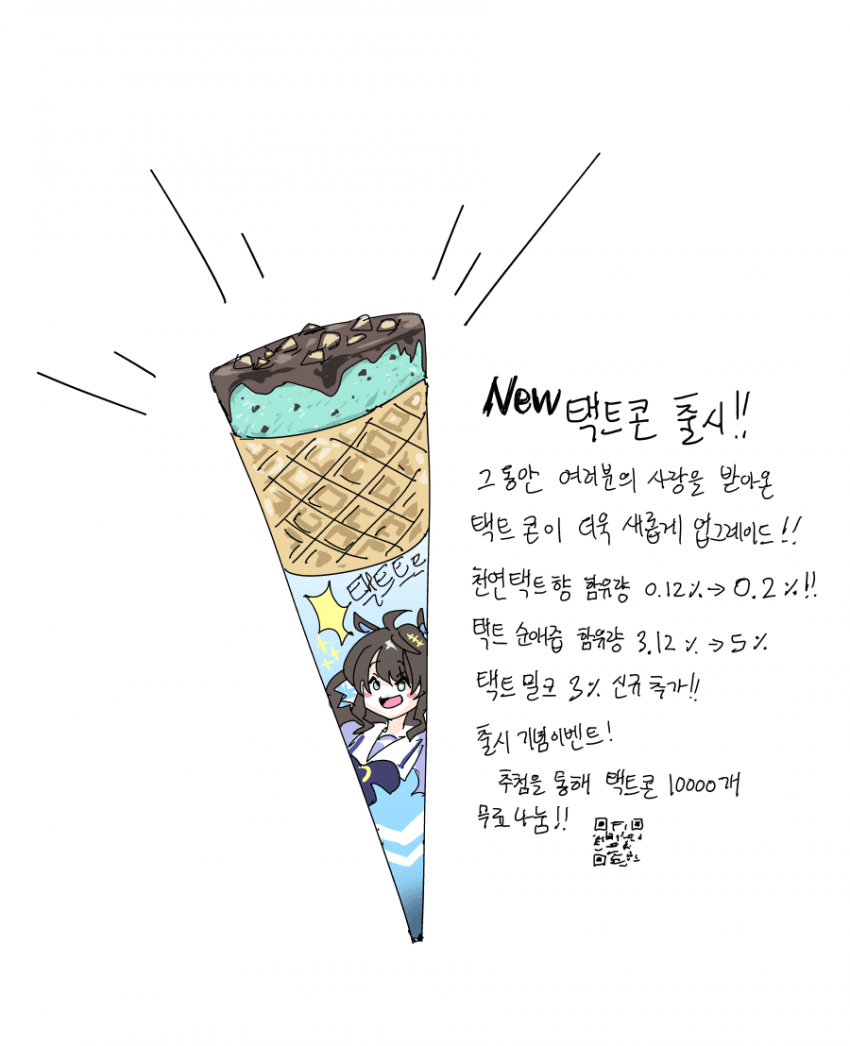 New 택트콘 출시!!
그동안 여러분의 사랑을 받아온
택트콘이 더욱 새롭게 업그레이드!!
천연택트향 함유량 0.12%→0.2%!!
택트 순애즙 함유량 3.12%→5%
택트 밀크 3% 신규추가!!
출시 기념이벤트!
추첨을 통해 택트콘 10000개
무료나눔!!
택트